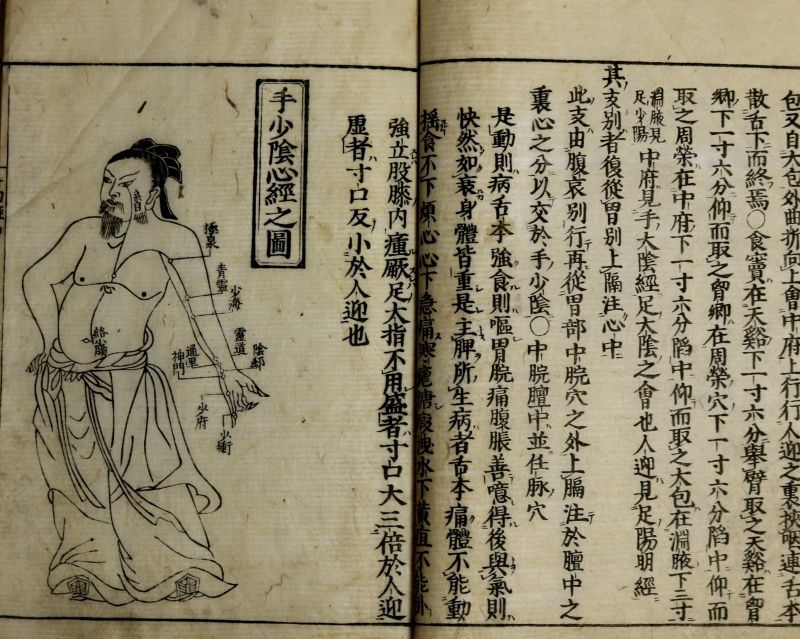 包又自大包外曲折向上會中府上行行人迎之裏挾咽連舌本
散舌下而終焉○食竇在天谿下一寸六分舉臂取之天谿在胷
鄉下一寸六分仰而取之胷鄉在周榮穴下一寸六分陷中仰而
取之周榮在中府下一寸六分陷中仰而取之大包在淵腋下三寸
淵腋見足少陽中府見手太陰經足太陰之會也人迎見足陽明經
其支別者復從胃別上膈注心中
此支由腹哀別行再從胃部中脘穴之外上膈注於膻中之
裏心之分以交於手少陰○中脘膻中並任脉穴
是動則病舌本強食則嘔胃脘痛腹脹善噫得後與氣則
快然如衰身體皆重是主脾所生病者舌本痛體不能動
搖食不下煩心心下急痛寒瘧溏瘕洩水下黃疸不能卧
強立股膝內瘇厥足大指不用盛者寸口大三倍於人迎
虛者寸口反小於人迎也
手少陰心經之圖
極泉
青靈
少海
靈道
陰郄
通里
神門
少府
少衝
心
絡小腸